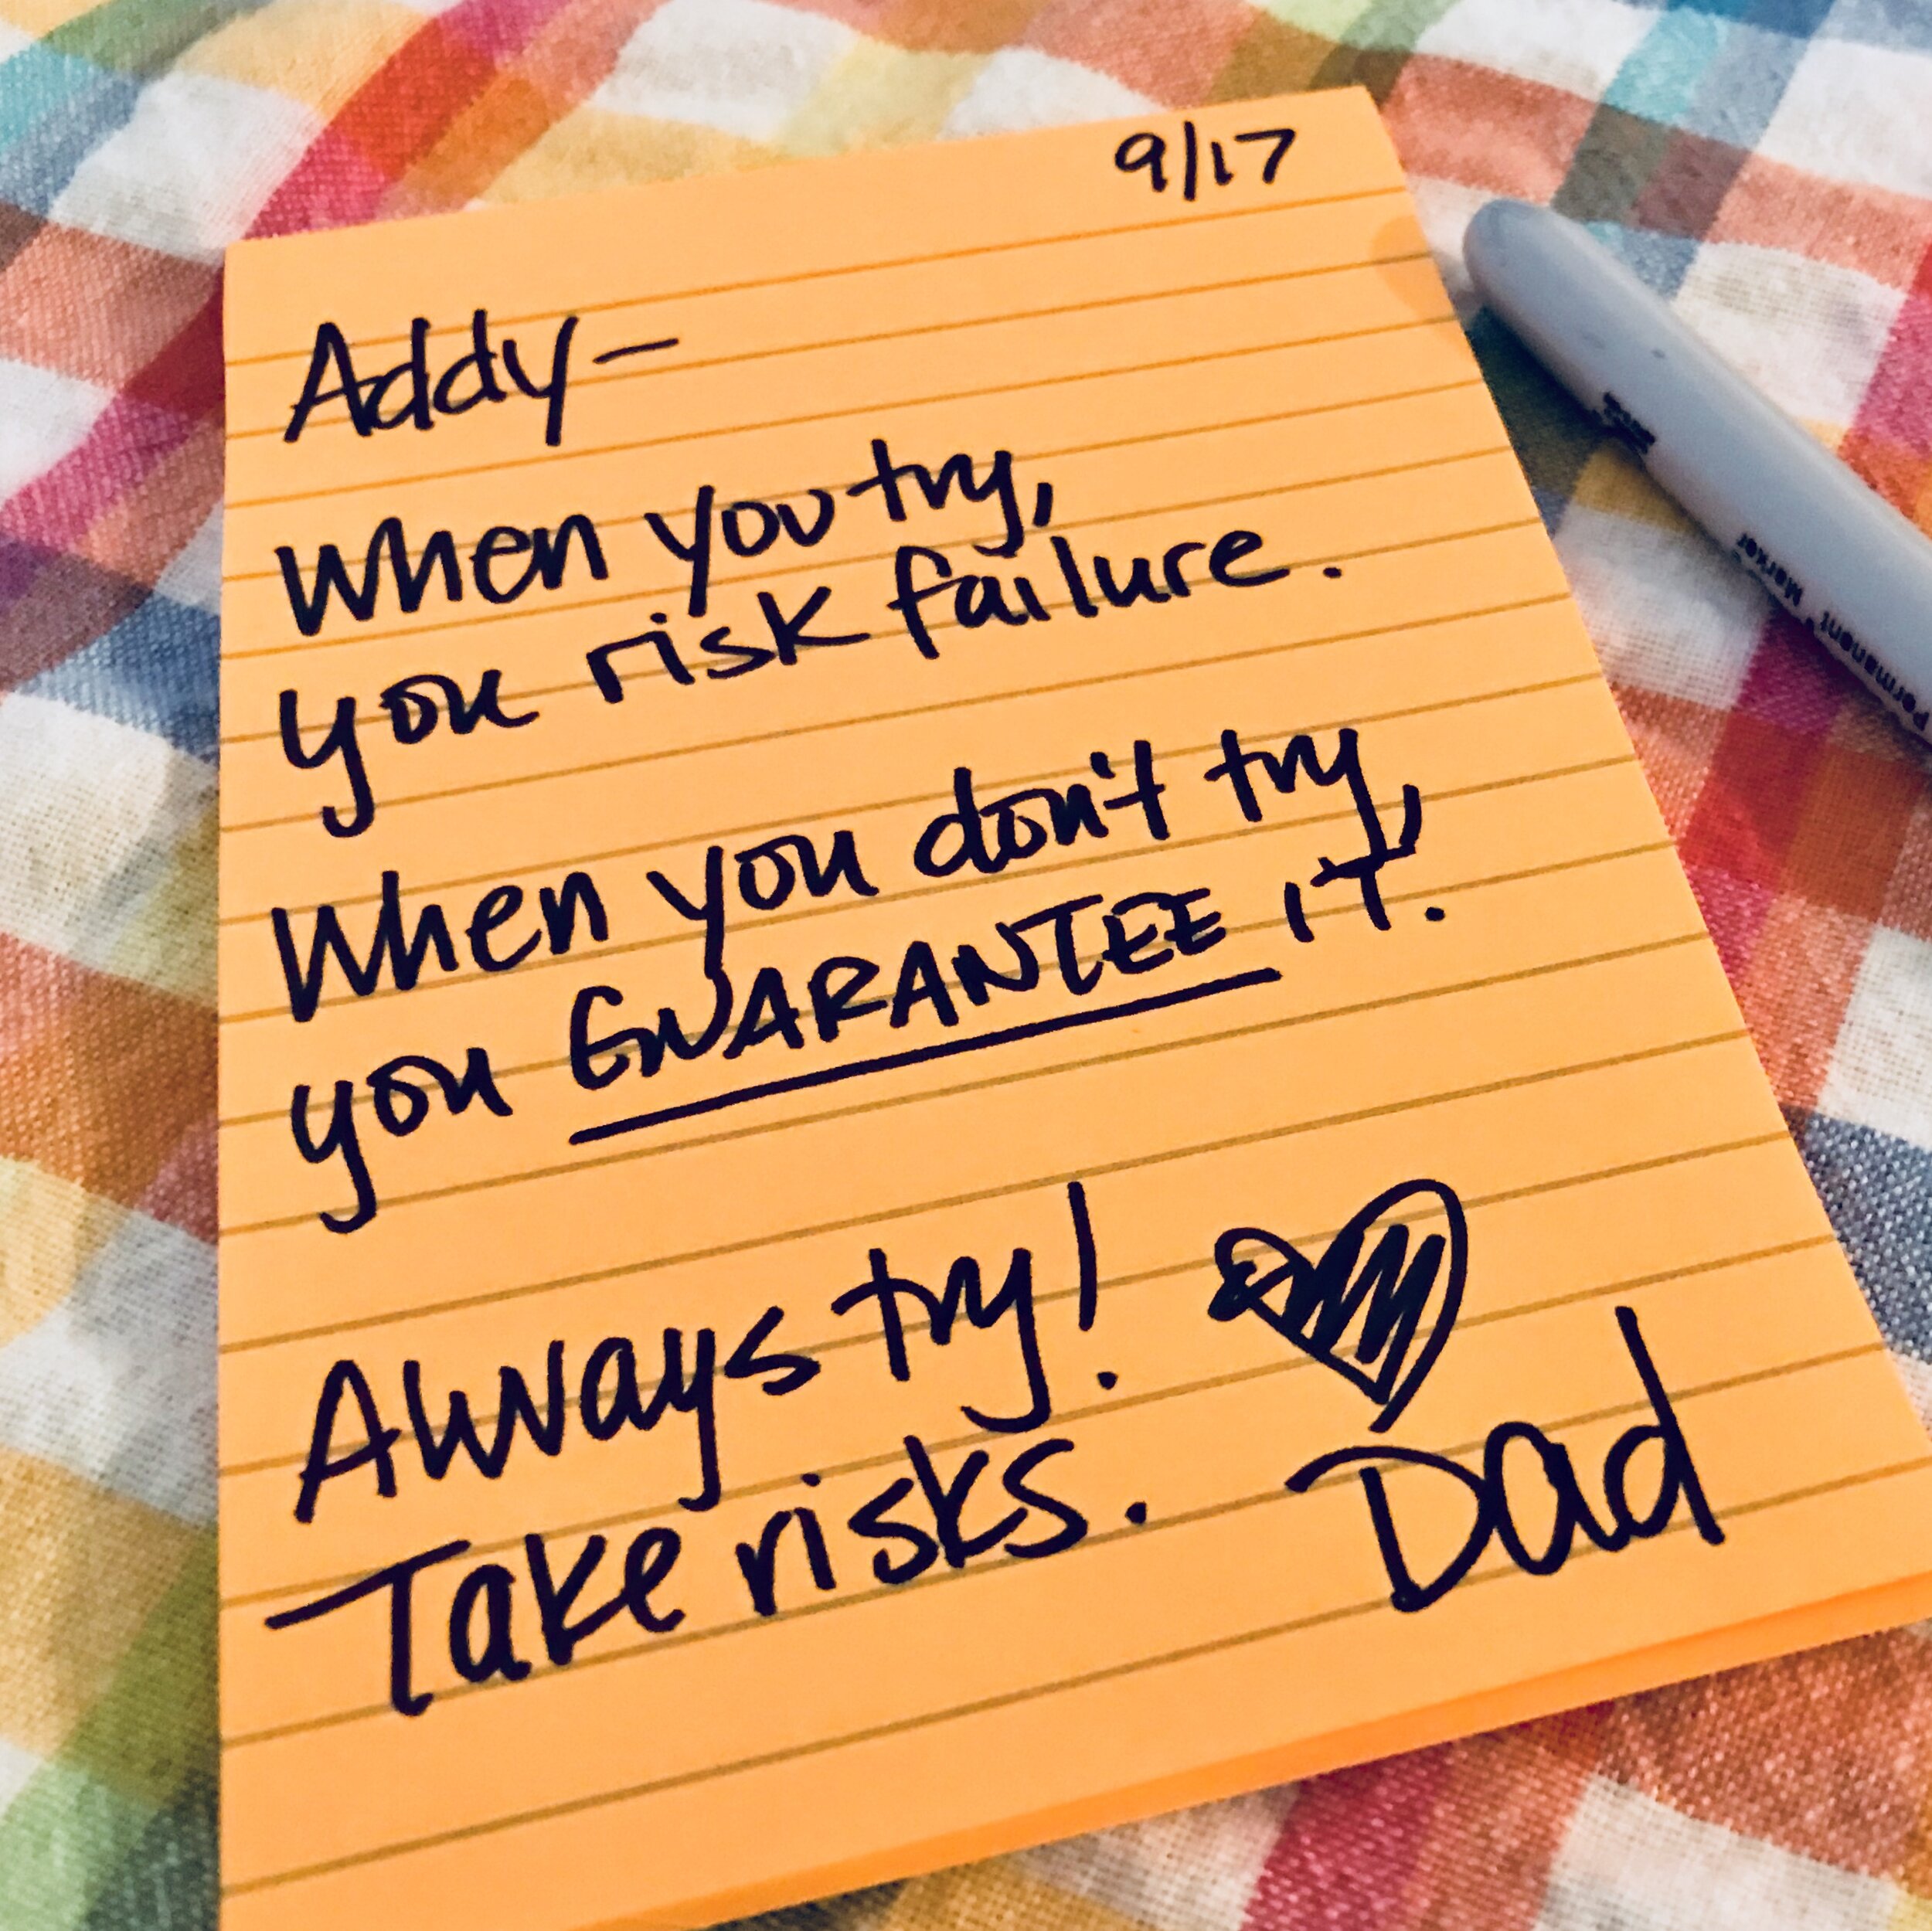 9/17
Addy—
When you try,
you risk failure.
When you don't try,
you GUARANTEE IT.
Always try!
Take risks.
Dad
Permanent Marker